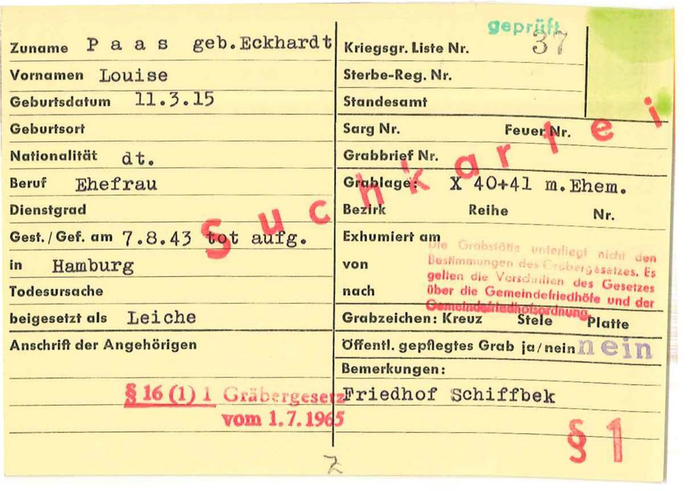 geprüft
Zuname P a a s geb.Eckhardt
Vornamen Louise
Geburtsdatum 11.3.15
Geburtsort
Nationalität dt.
Beruf Ehefrau
Dienstgrad
Gest./Gef. am 7.8.43 tot aufg.
in Hamburg
Todesursache
beigesetzt als Leiche
Anschrift der Angehörigen
§ 16 (1) 1 Gräbergesetz
vom 1.7.1965
Kriegsgr. Liste Nr. 37
Sterbe-Reg. Nr.
Standesamt
Sarg Nr. Feuer Nr.
Grabbrief Nr.
Grablage: X 40+41 m.Ehem.
Bezirk Reihe Nr.
Exhumiert am
von
nach
Die Grabstätte unterliegt nicht den
Bestimmungen des Gräbergesetzes. Es
gelten die Vorschriften des Gesetzes
über die Gemeindefriedhöfe und der
Gemeindefriedhofsordnung.
Grabzeichen: Kreuz Stele Platte
Öffentl. gepflegtes Grab ja/nein nein
Bemerkungen:
Friedhof Schiffbek
§ 1
Suchkartei
Z